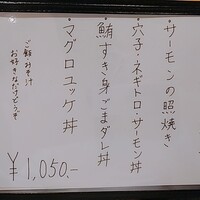 ・サーモンの照焼き
・穴子・ネギトロ・サーモン丼
・鮪すき身ごまダレ丼
・マグロユッケ丼
ご飯・みそ汁
お好きなだけどうぞ
¥1,050.-